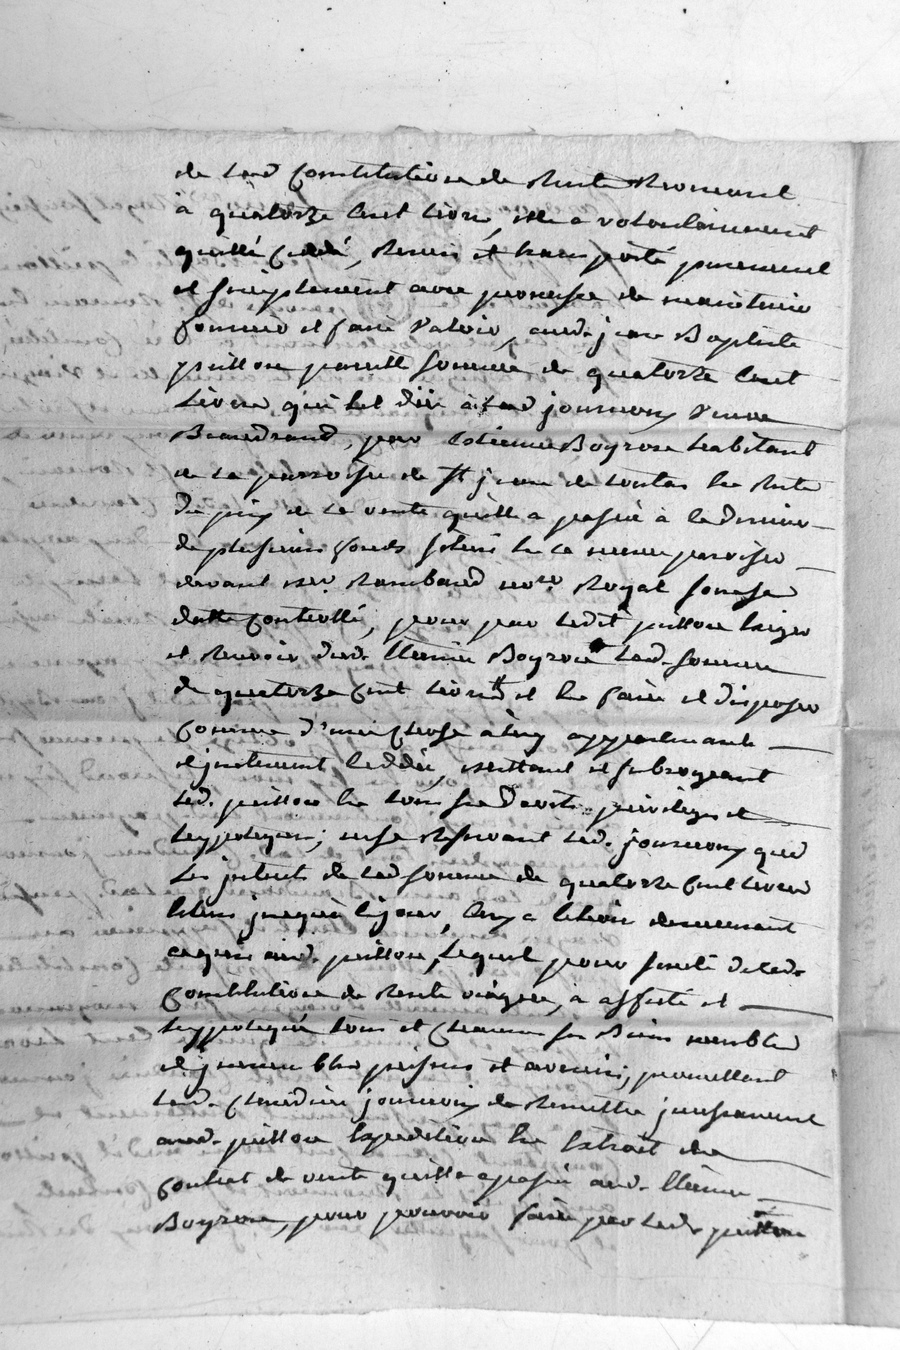 de lad Constitution de Rente Revenant
à quatorze Cent livres, elle a volontairement
quitté Cedé, Remis et transporté purement
et simplement avec promesse de maintenir
fournir et faire valoir, aud. jean Baptiste
puillon pareille somme de quatorze Cent
Livres qui luy dûe à lad journoy veuve
Beaudrand, par Etienne Boyron habitant
de la parroisse de St jean de toutas En Reste
Du prix de la vente qu'elle a passé à Ce dernier
de plusieurs fonds situés En la meme parroisse
devant me. Rambaud nore. Royal sous sa
datte Controllé, pour par ledit puillon Exiger
et Recevoir dud. Etienne Boyron lad. somme
de quatorze Cent livres et En faire et disposer
Comme d'une Chose à luy appartenante
et justement Cedée, mettant et subrogeant
led. puillon En tous ses Droits, privileges et
hyppoteques; ne se Reservant lad. journoy que
Les interets de lad somme de quatorze Cent livres
Echus jusqu'à Ce jour, Ceux a Echoir demeurant
acquis aud. puillon, Lequel pour sureté de lad.
Constitution de Rente viagere, a affecté et
hyppotequé tous et Chacuns ses Biens meubles
et immeubles presens et avenir; promettant
lad. Claudine journoy de Remettre incessament
aud. puillon Expedition En Extrait du
Contrat de vente qu'elle a passé aud. Etienne
Boyron, pour pouvoir faire par led. puillon